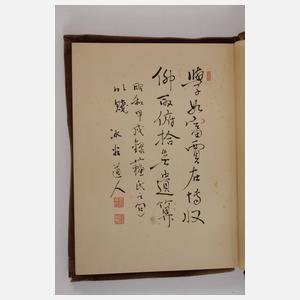 學如富賈在博收
仰取俯拾無遺籌
昭和甲戌錄蘇氏之句
以餞
道人